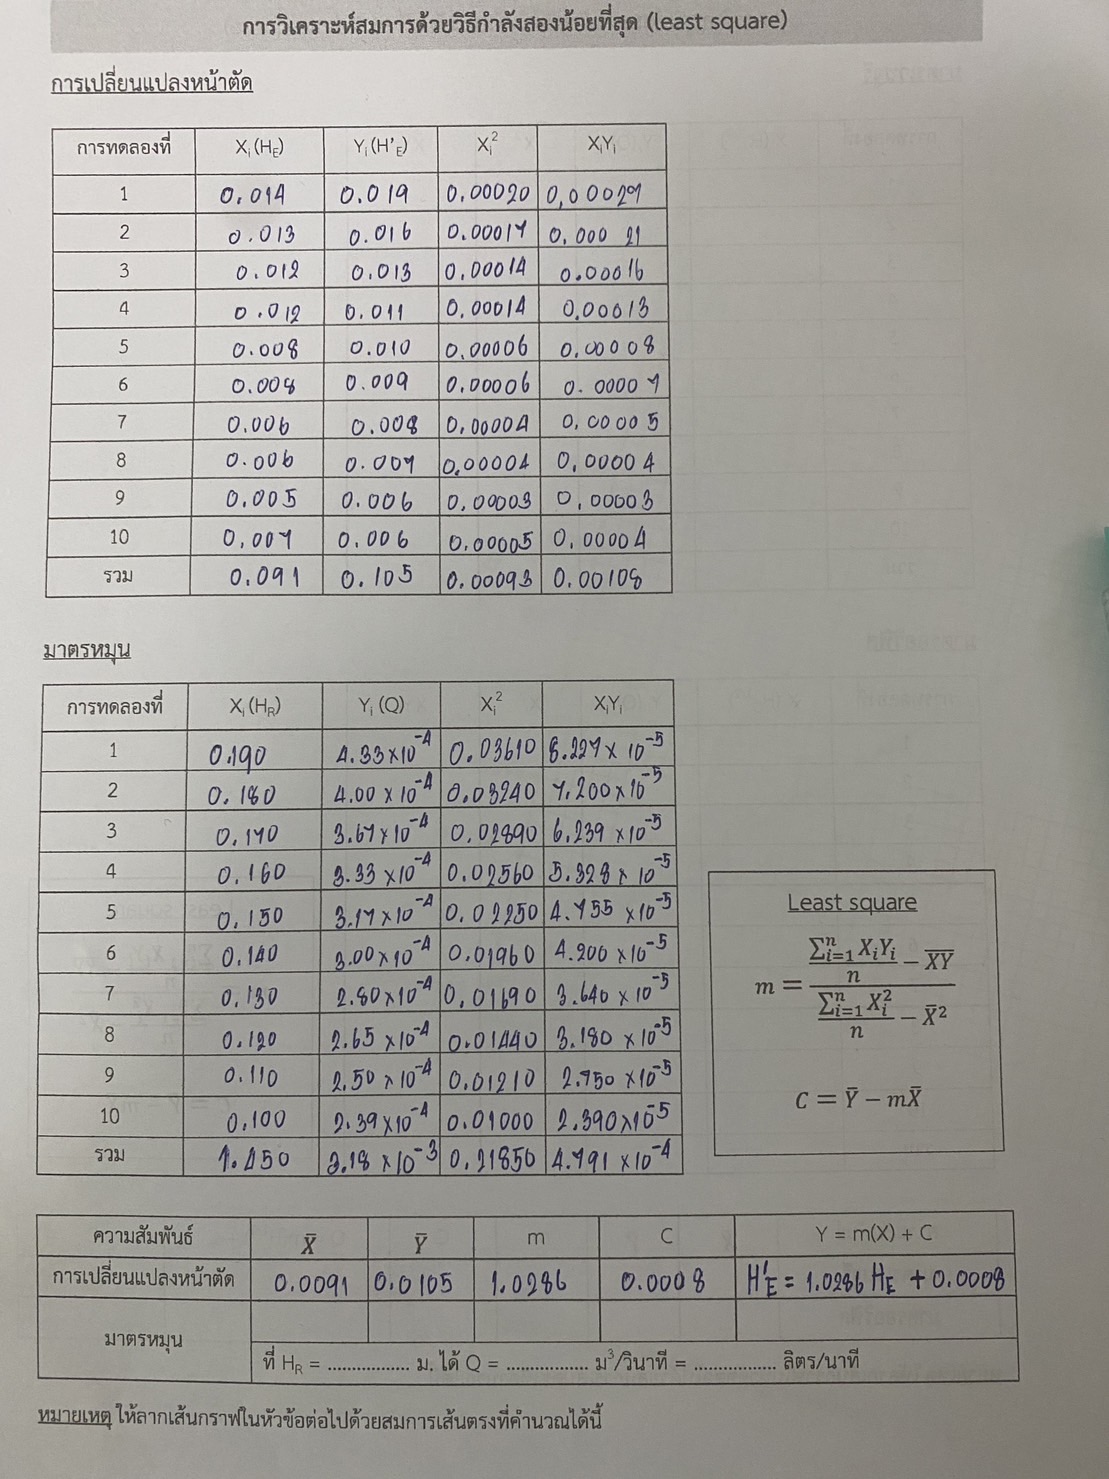 การวิเคราะห์สมการด้วยวิธีกำลังสองน้อยที่สุด (least square)
การเปลี่ยนแปลงหน้าตัด
การทดลองที่ Xᵢ (H_E) Yᵢ (H'_E) Xᵢ² XᵢYᵢ
1 0.014 0.019 0.00020 0,00027
2 0.013 0.016 0.00017 0,000 21
3 0.012 0.013 0,00014 0.00016
4 0.012 0.011 0,00014 0,00013
5 0.008 0.010 0,00006 0,00008
6 0.008 0.009 0.00006 0.00007
7 0.006 0.008 0,00004 0,00005
8 0.006 0.007 0,00004 0,00004
9 0.005 0.006 0.00003 0,00003
10 0,007 0.006 0,00005 0,00004
รวม 0.091 0.105 0.00093 0.00108
มาตรหมุน
การทดลองที่ Xᵢ (H_R) Yᵢ (Q) Xᵢ² XᵢYᵢ
1 0.190 4.33×10⁻⁴ 0.03610 8.227× 10⁻⁵
2 0.180 4.00 × 10⁻⁴ 0.03240 7.200×10⁻⁵
3 0.170 3.67× 10⁻⁴ 0.02890 6.239 ×10⁻⁵
4 0.160 3.33 ×10⁻⁴ 0.02560 5.328 × 10⁻⁵
5 0.150 3.17×10⁻⁴ 0.02250 4.755 ×10⁻⁵
6 0.140 3.00×10⁻⁴ 0.01960 4.200 ×10⁻⁵
7 0.130 2.80×10⁻⁴ 0,01690 3.640 ×10⁻⁵
8 0.120 2.65 ×10⁻⁴ 0.01440 3.180 ×10⁻⁵
9 0.110 2.50 ×10⁻⁴ 0.01210 2.750 ×10⁻⁵
10 0,100 2.39×10⁻⁴ 0.01000 2.390×10⁻⁵
รวม 1.450 3.18 ×10⁻³ 0.21850 4.791 ×10⁻⁴
Least square
m = (∑ⁿᵢ₌₁ XᵢYᵢ / n − X̅Y̅) / (∑ⁿᵢ₌₁ Xᵢ² / n − X̅²)
C = Y̅ − mX̅
ความสัมพันธ์ X̅ Y̅ m C Y = m(X) + C
การเปลี่ยนแปลงหน้าตัด 0.0091 0.0105 1.0286 0.0008 H'_E = 1.0286 H_E + 0.0008
มาตรหมุน
ที่ H_R = ................. ม. ได้ Q = ................. ม³/วินาที = ................. ลิตร/นาที
หมายเหตุ ให้ลากเส้นกราฟในหัวข้อต่อไปด้วยสมการเส้นตรงที่คำนวณได้นี้